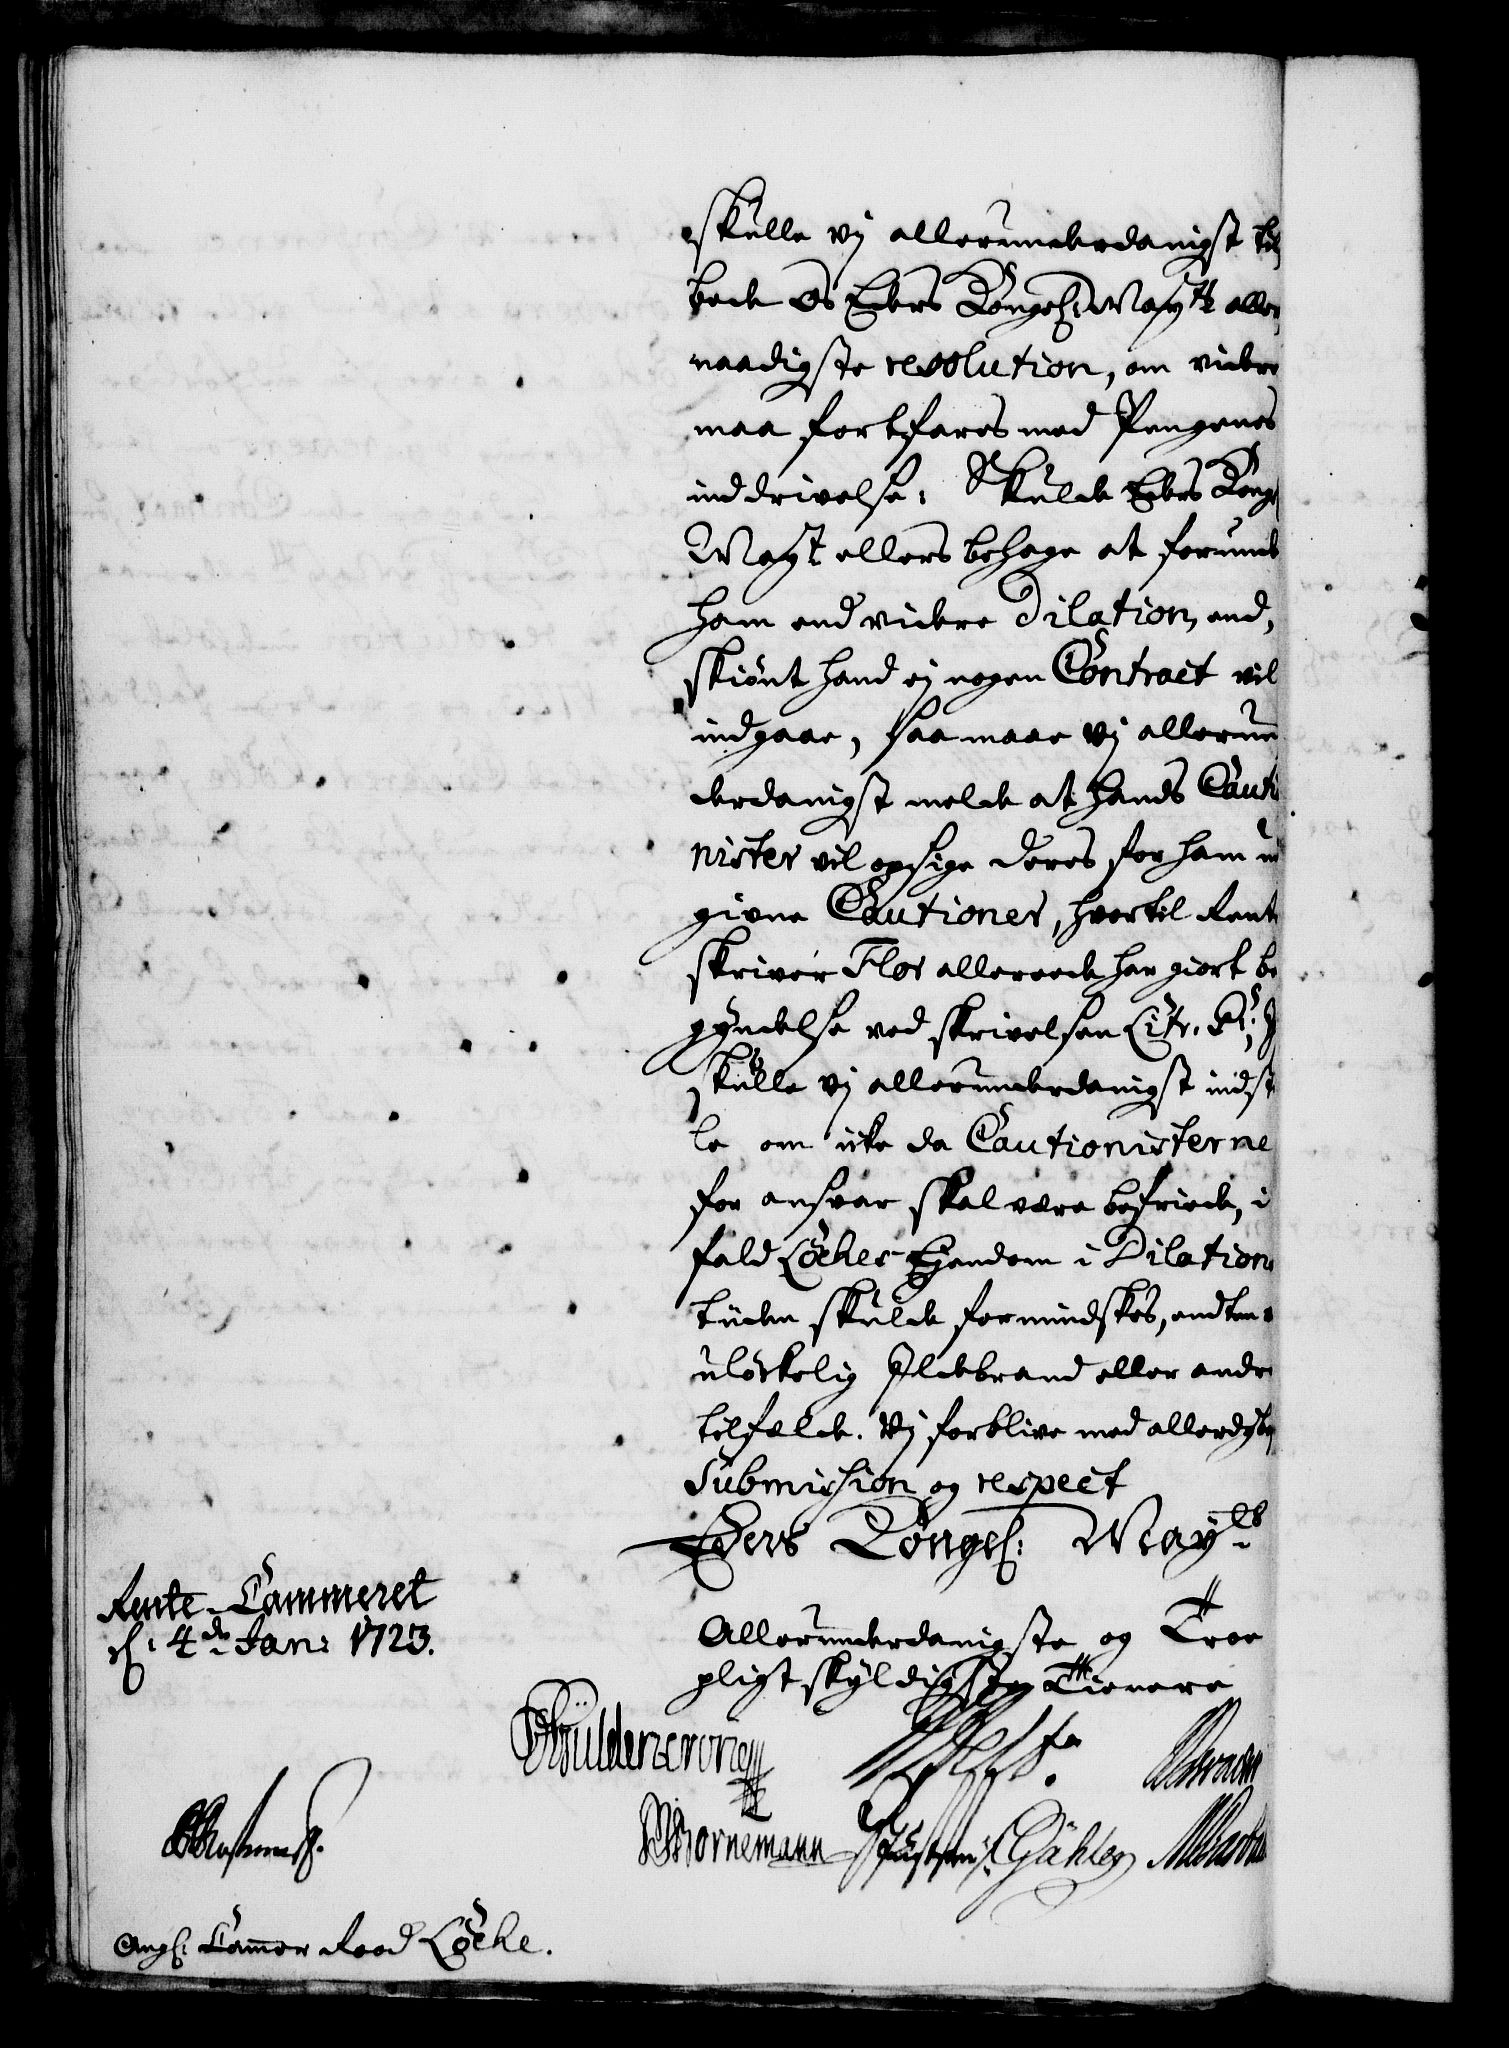 skulle vj allerunderdanigst til
bede os Eders Kongel: Mayts aller
naadigste resolution, om videre
maa fortfares med Pengenes
inddrivelse: Skulde Eders Kongl
Mayt ellers behage at forunde
ham end videre Dilation, end,
skiönt hand ej nogen Contract vil
indgaae, saa maae vj allerun
derdanigst melde at hands Cauti
nister vil opsige deres for ham ud
givne Cautioner, hvortil Rente
skriver Flor allereede har giort be
gyndelse ved skrivelsen Litr.
skulle vj allerunderdanigst indstil
le om icke da Cautionisterne
for ansvar skal være befriede, i
fald Löches Ejendom i Dilations
tiiden skulde formindskes, endten
ulöckelig Ildebrand eller andre
tilfælde. Vj forblive med allerdybe
Submission og respect
Eders Kongel: Mayts
Rente-Cammeret
d: 4de Jan: 1723.
Allerunderdanigste og Troe
pligtskyldigste Tienere
Güldencrone
Bornemann Gähler
Angl: Cammer Raad Löche.